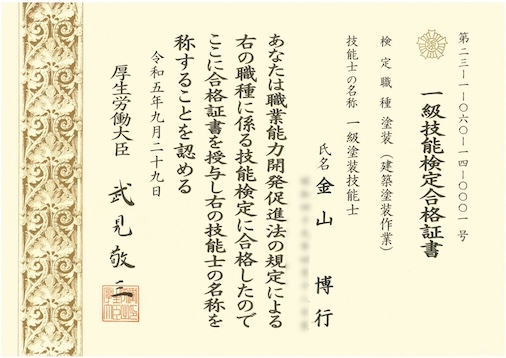 第二三―一―〇六〇―一四―〇〇〇一号
一級技能検定合格証書
検定職種 塗装（建築塗装作業）
技能士の名称 一級塗装技能士
氏名 金山 博行
あなたは職業能力開発促進法の規定による
右の職種に係る技能検定に合格したので
ここに合格証書を授与し右の技能士の名称を
称することを認める
令和五年九月二十九日
厚生労働大臣 武見敬三